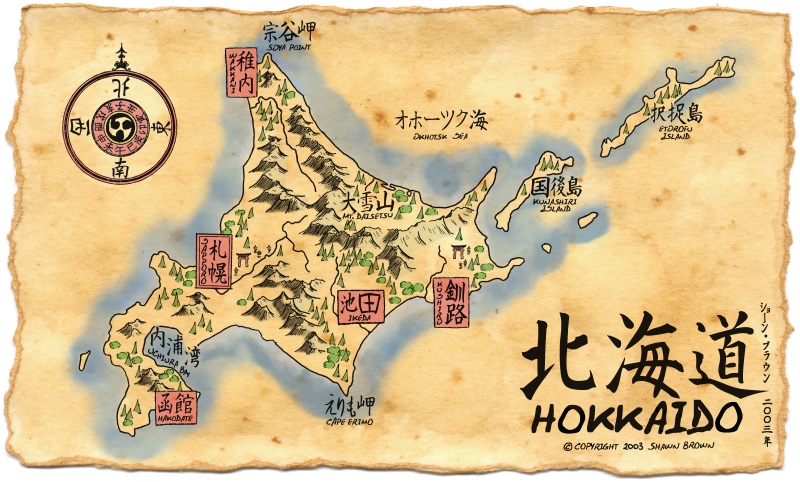 宗谷岬
SOYA POINT
稚内
WAKKANAI
北
東
南
西
オホーツク海
OKHOTSK SEA
択捉島
ETOROFU
ISLAND
国後島
KUNASHIRI
ISLAND
大雪山
MT. DAISETSU
札幌
SAPPORO
池田
IKEDA
釧路
KUSHIRO
内浦湾
UCHIURA BAY
函館
HAKODATE
えりも岬
CAPE ERIMO
北海道
HOKKAIDO
ショーン・ブラウン 二〇〇三年
© COPYRIGHT 2003 SHAWN BROWN